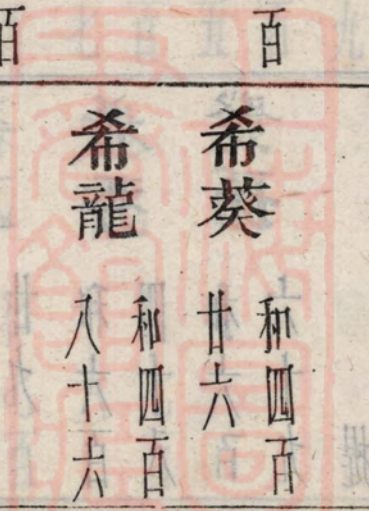 百
百
希葵
和四百
廿六
希龍
和四百
八十六